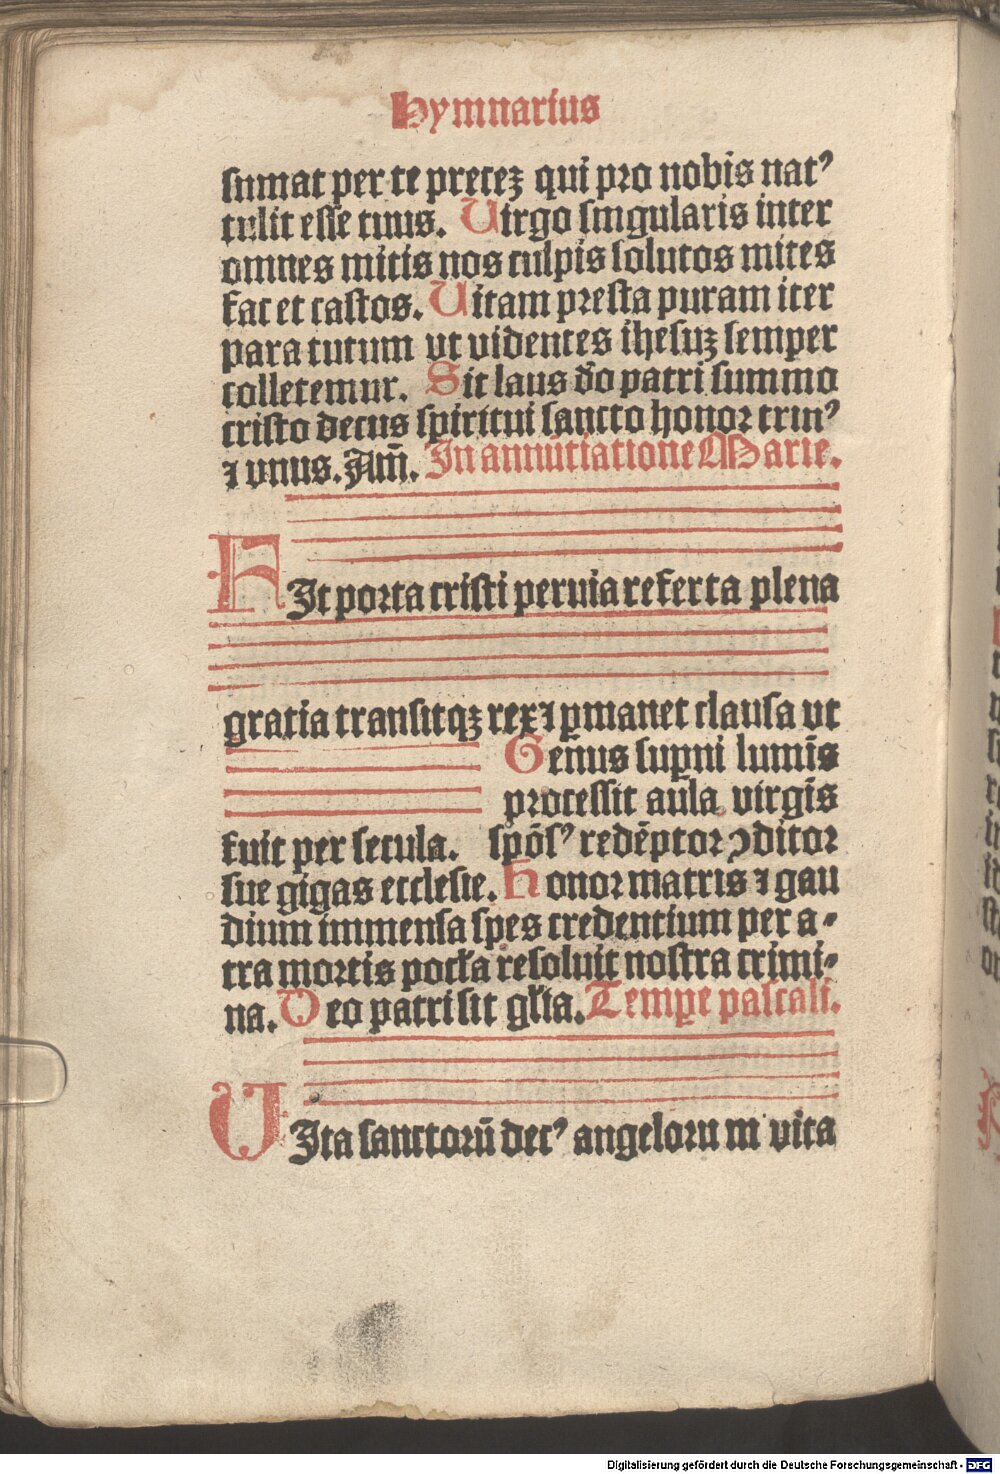 Hymnarius
sumat per te precez qui pro nobis natꝰ
tulit esse tuus. Uirgo singularis inter
omnes mitis nos culpis solutos mites
fac et castos. Uitam presta puram iter
para tutum ut videntes ihesuz semper
colletemur. Sit laus do patri summo
cristo decus spiritui sancto honor trinꝰ
⁊ vnus. Am̄. In annūtiatione Marie.
FIt porta cristi peruia referta plena
gratia transitqꝫ rex ⁊ ꝑmanet clausa ut
fuit per secula.
Genus suꝑni lumīs
processit aula virgīs
spōsꝰ redēptor ꝯditor
sue gigas ecclesie. Honor matris ⁊ gau
dium immensa spes credentium per a⸗
tra mortis pocľa resoluit nostra crimi⸗
na. Deo patri sit gľia. Tempe pascali.
VIta sanctorū decꝰ angelorum vita
Digitalisierung gefördert durch die Deutsche Forschungsgemeinschaft - DFG